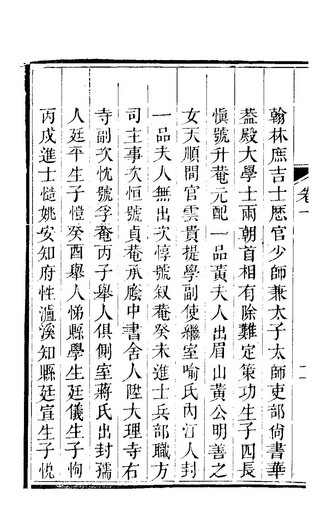 卷一
二
翰林庶吉士歷官少師兼太子太師吏部尚書華
葢殿大學士兩朝首相有除難定策功生子四長
愼號升菴元配一品黃夫人出眉山黃公明善之
女天順間官雲貴提學副使繼室喻氏內江人封
一品夫人無出次惇號敘菴癸未進士兵部職方
司主事次恒號貞菴承廕中書舍人陞大理寺右
寺副次忱號孚菴丙子舉人俱側室蔣氏出封孺
人廷平生子愷癸酉舉人悌縣學生廷儀生子恂
丙戌進士慥姚安知府性瀘溪知縣廷宣生子悅